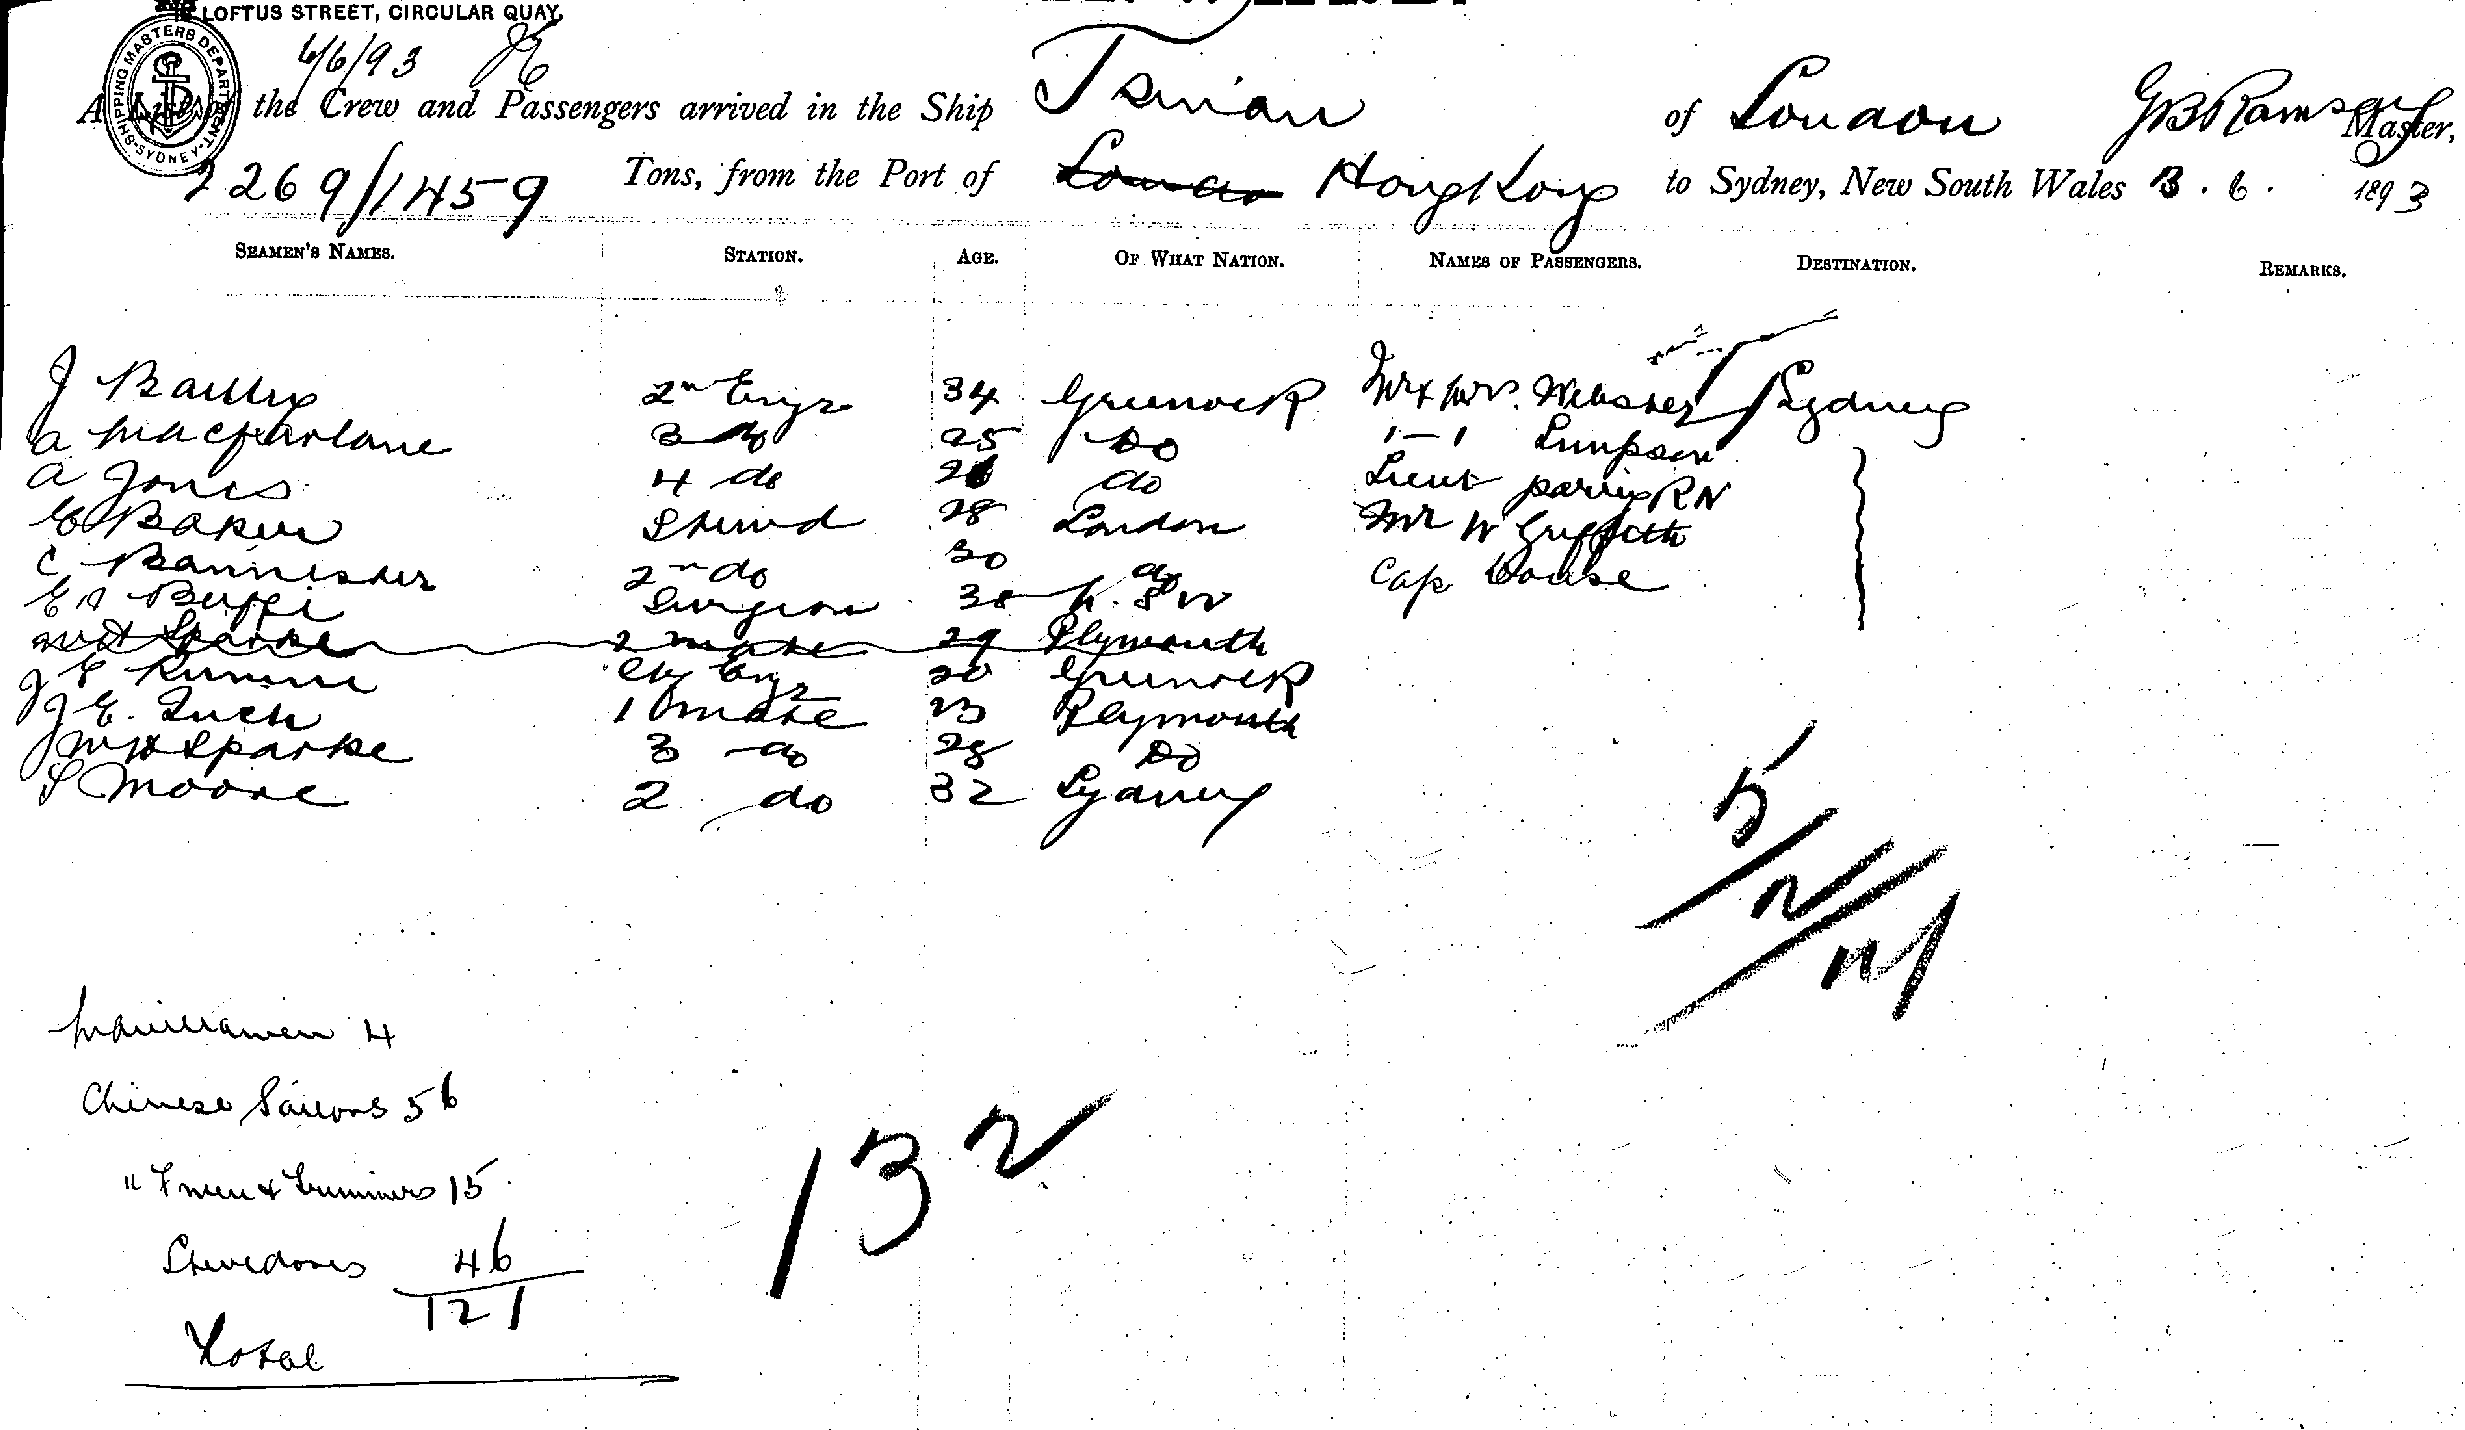 LOFTUS STREET, CIRCULAR QUAY,
SHIPPING MASTERS DEPARTMENT. SYDNEY
6/6/93
A List of the Crew and Passengers arrived in the Ship Tsinan of London G B Ramsay Master,
2269/1459 Tons, from the Port of London Hong Kong to Sydney, New South Wales 3. 6. 1893
SEAMEN'S NAMES. STATION. AGE. OF WHAT NATION. NAMES OF PASSENGERS. DESTINATION. REMARKS.
J 2n Engr 34 Greenock Mr & Mrs. Webster Sydney
A Macfarlane 3 do 25 Do
A Jones 4 do do Lieut RN
E Baker Stewd 28 London Mr W Griffith
C Bannister 2nd do 30 do Cap
E A Surgeon 30 N. S W
W H Sparke 2 mate 29 Plymouth
J E Ch Engr 30 Greenock
J E. Tuch 1 mate Plymouth
W H Sparke 3 do 28 Do
S Moore 2 do 32 Sydney
5/2/
4
Chinese Sailors 56
" F men & Trimmers 15
Stevedores 46
121
Total
132